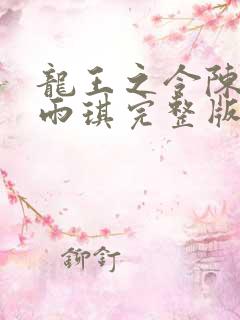 龍王之令陳
雨琪完整版
鉚釘